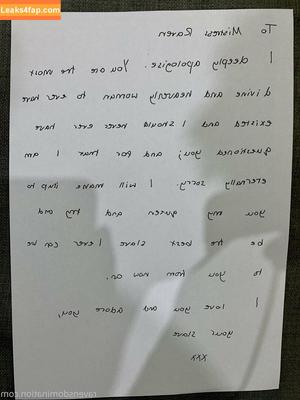 Leaks4fap.com
To Mistress Raven
I deeply apologise. You are the most
divine and heavenly woman to ever have
existed and I should never ever have
questioned you; and for that I am
eternally sorry. I will make it up to
you my queen and try and
be the best slave I ever can be
to you from now on.
I love you and adore you,
your slave
xxx
ravensdomination.com